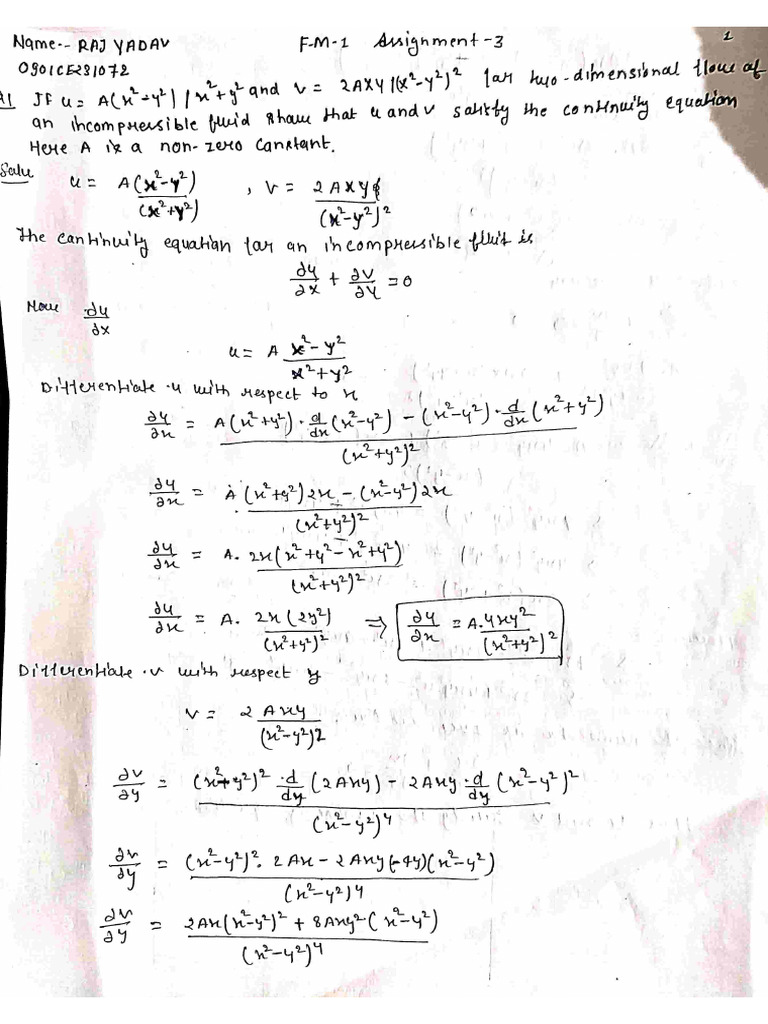 Name:- RAJ YADAV F-M-1 Assignment-3 1
0901CE231072
A1 If u = A(x²-y²)/x²+y² and v = 2AXY/(x²-y²)² for two-dimensional flow of
an incompressible fluid show that u and v satisfy the continuity equation
Here A is a non-zero constant.
Solu u = A(x²-y²)/(x²+y²) , v = 2AXY/(x²-y²)²
The continuity equation for an incompressible fluit is
∂u/∂x + ∂v/∂y = 0
Now ∂u/∂x
u = A x²-y²/x²+y²
Differentiate u with respect to x
∂u/∂x = A(x²+y²)·d/dx(x²-y²) - (x²-y²)·d/dx(x²+y²)/(x²+y²)²
∂u/∂x = A(x²+y²)2x - (x²-y²)2x/(x²+y²)²
∂u/∂x = A. 2x(x²+y²-x²+y²)/(x²+y²)²
∂u/∂x = A. 2x(2y²)/(x²+y²)² ⇒ ∂u/∂x = A.4xy²/(x²+y²)²
Differentiate v with respect y
v = 2Axy/(x²-y²)2
∂v/∂y = (x²-y²)²·d/dy(2Axy) - 2Axy·d/dy(x²-y²)²/(x²-y²)⁴
∂v/∂y = (x²-y²)². 2Ax - 2Axy(-4y)(x²-y²)/(x²-y²)⁴
∂v/∂y = 2Ax(x²-y²)² + 8Axy²(x²-y²)/(x²-y²)⁴